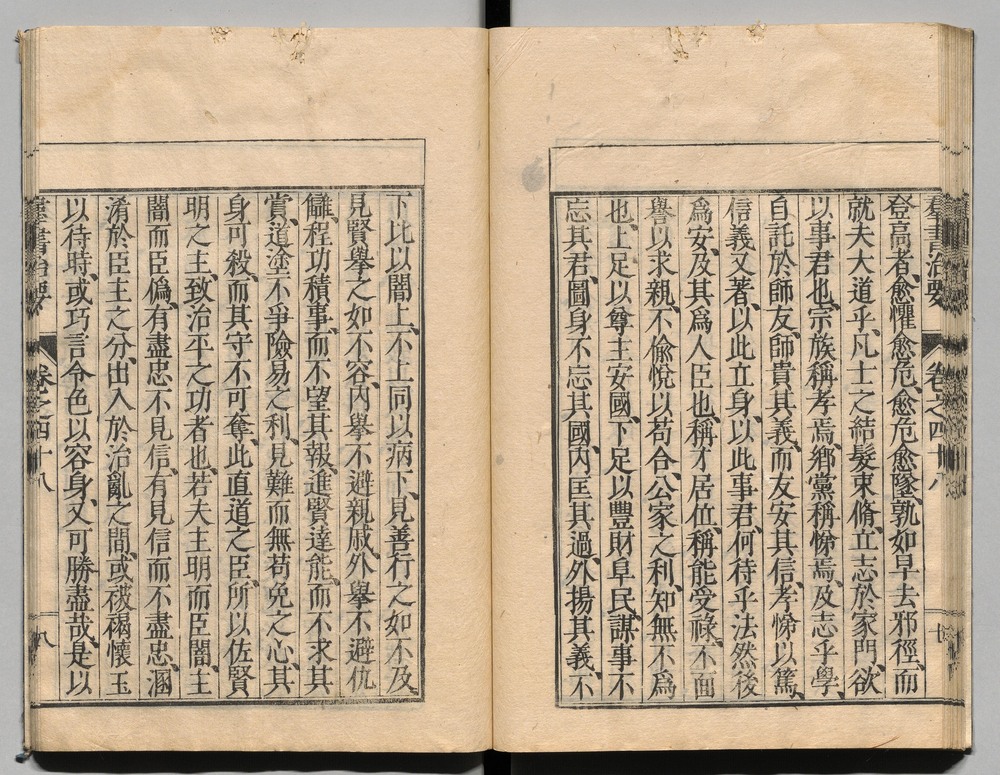 群書治要 卷之四十八
登高者、愈懼愈危、愈危愈墜、孰如早去邪徑、而
就夫大道乎、凡士之結髮束脩、立志於家門、欲
以事君也、宗族稱孝焉、鄉黨稱悌焉、及志乎學、
自託於師友、師貴其義、而友安其信、孝悌以篤、
信義又著、以此立身、以此事君、何待乎法然後
爲安、及其爲人臣也、稱才居位、稱能受祿、不面
譽以求親、不偸悅以苟合、公家之利、知無不爲
也、上足以尊主安國、下足以豐財阜民、謀事不
忘其君、圖身不忘其國、內匡其過、外揚其義、不
下比以闇上、不上同以病下、見善行之如不及、
見賢舉之如不容、內舉不避親戚、外舉不避仇
讎、程功積事、而不望其報、進賢達能、而不求其
賞、道塗不爭險易之利、見難而無苟免之心、其
身可殺、而其守不可奪、此直道之臣、所以佐賢
明之主、致治平之功者也、若夫主明而臣闇、主
闇而臣僞、有盡忠不見信、有見信而不盡忠、溷
淆於臣主之分、出入於治亂之間、或被褐懷玉
以待時、或巧言令色以容身、又可勝盡哉、是以
群書治要 卷之四十八 八